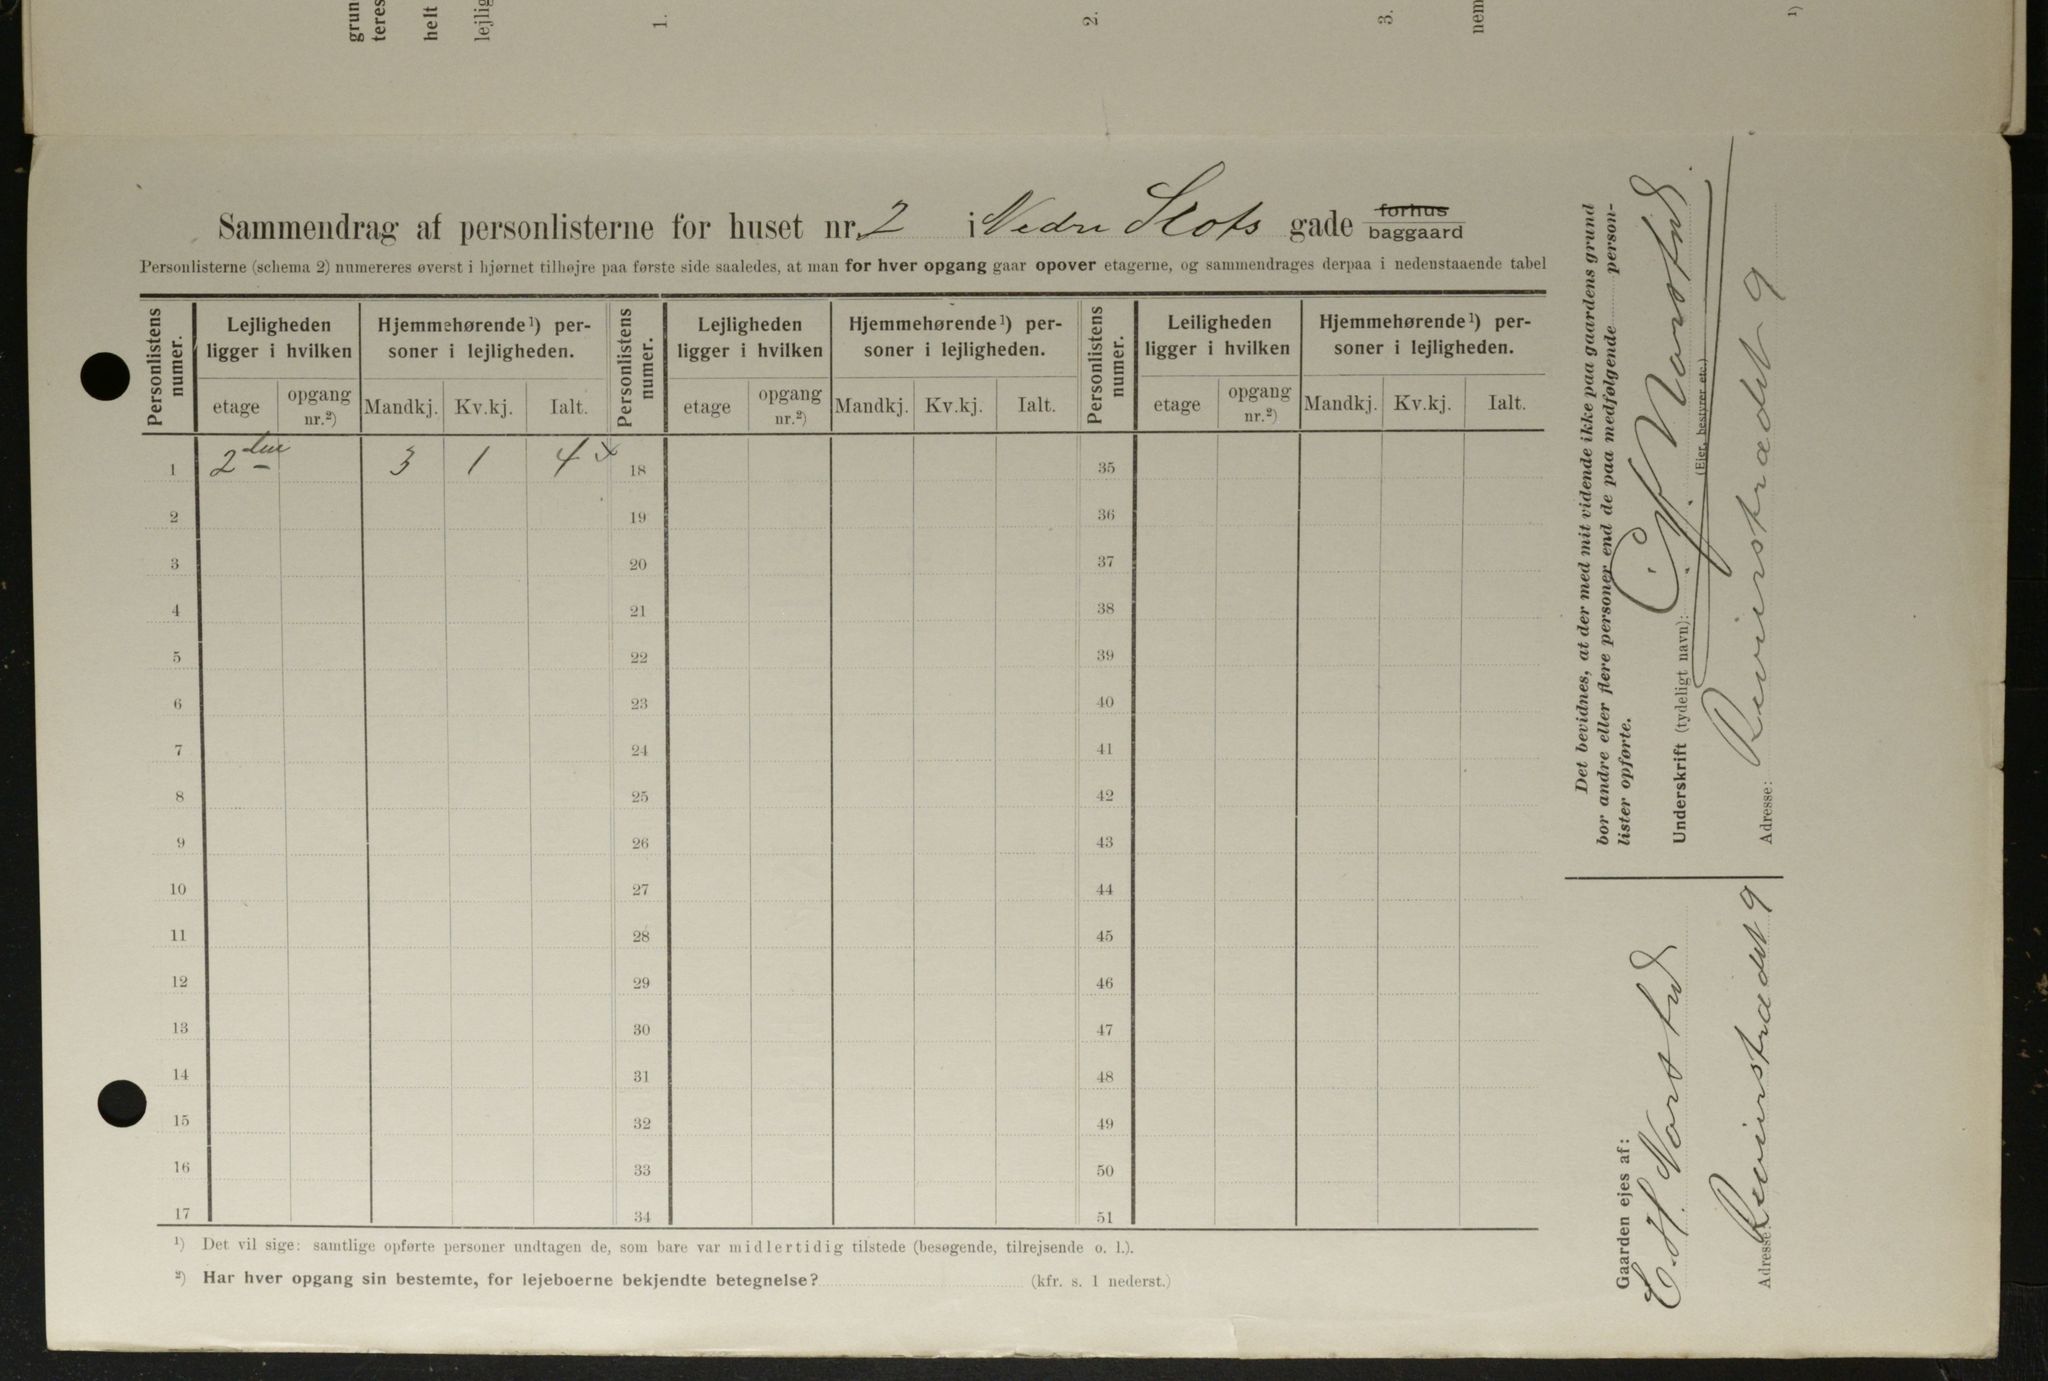 grun
teres
helt
lejlig
1.
2.
3.
nem
1)
Sammendrag af personlisterne for huset nr. 2 i Nedre Slots gade forhus baggaard
Personlisterne (schema 2) numereres øverst i hjørnet tilhøjre paa første side saaledes, at man for hver opgang gaar opover etagerne, og sammendrages derpaa i nedenstaaende tabel
Personlistens numer. Lejligheden ligger i hvilken Hjemmehørende 1) personer i lejligheden. Personlistens numer. Lejligheden ligger i hvilken Hjemmehørende 1) personer i lejligheden. Personlistens numer. Leiligheden ligger i hvilken Hjemmehørende 1) personer i lejligheden.
etage opgang nr.2) Mandkj. Kv.kj. Ialt. etage opgang nr.2) Mandkj. Kv.kj. Ialt. etage opgang nr.2) Mandkj. Kv.kj. Ialt.
1 2den 3 1 4 x 18 35
2 19 36
3 20 37
4 21 38
5 22 39
6 23 40
7 24 41
8 25 42
9 26 43
10 27 44
11 28 45
12 29 46
13 30 47
14 31 48
15 32 49
16 33 50
17 34 51
1) Det vil sige: samtlige opførte personer undtagen de, som bare var midlertidig tilstede (besøgende, tilrejsende o. l.).
2) Har hver opgang sin bestemte, for lejeboerne bekjendte betegnelse? (kfr. s. 1 nederst.)
Det bevidnes, at der med mit vidende ikke paa gaardens grund
bor andre eller flere personer end de paa medfølgende person-
lister opførte.
Underskrift (tydeligt navn): C. H. Narstad
(Eier, bestyrer etc.)
Adresse: Revierstrædet 9
Gaarden ejes af:
C. H. Narstad
Adresse: Revierstrædet 9